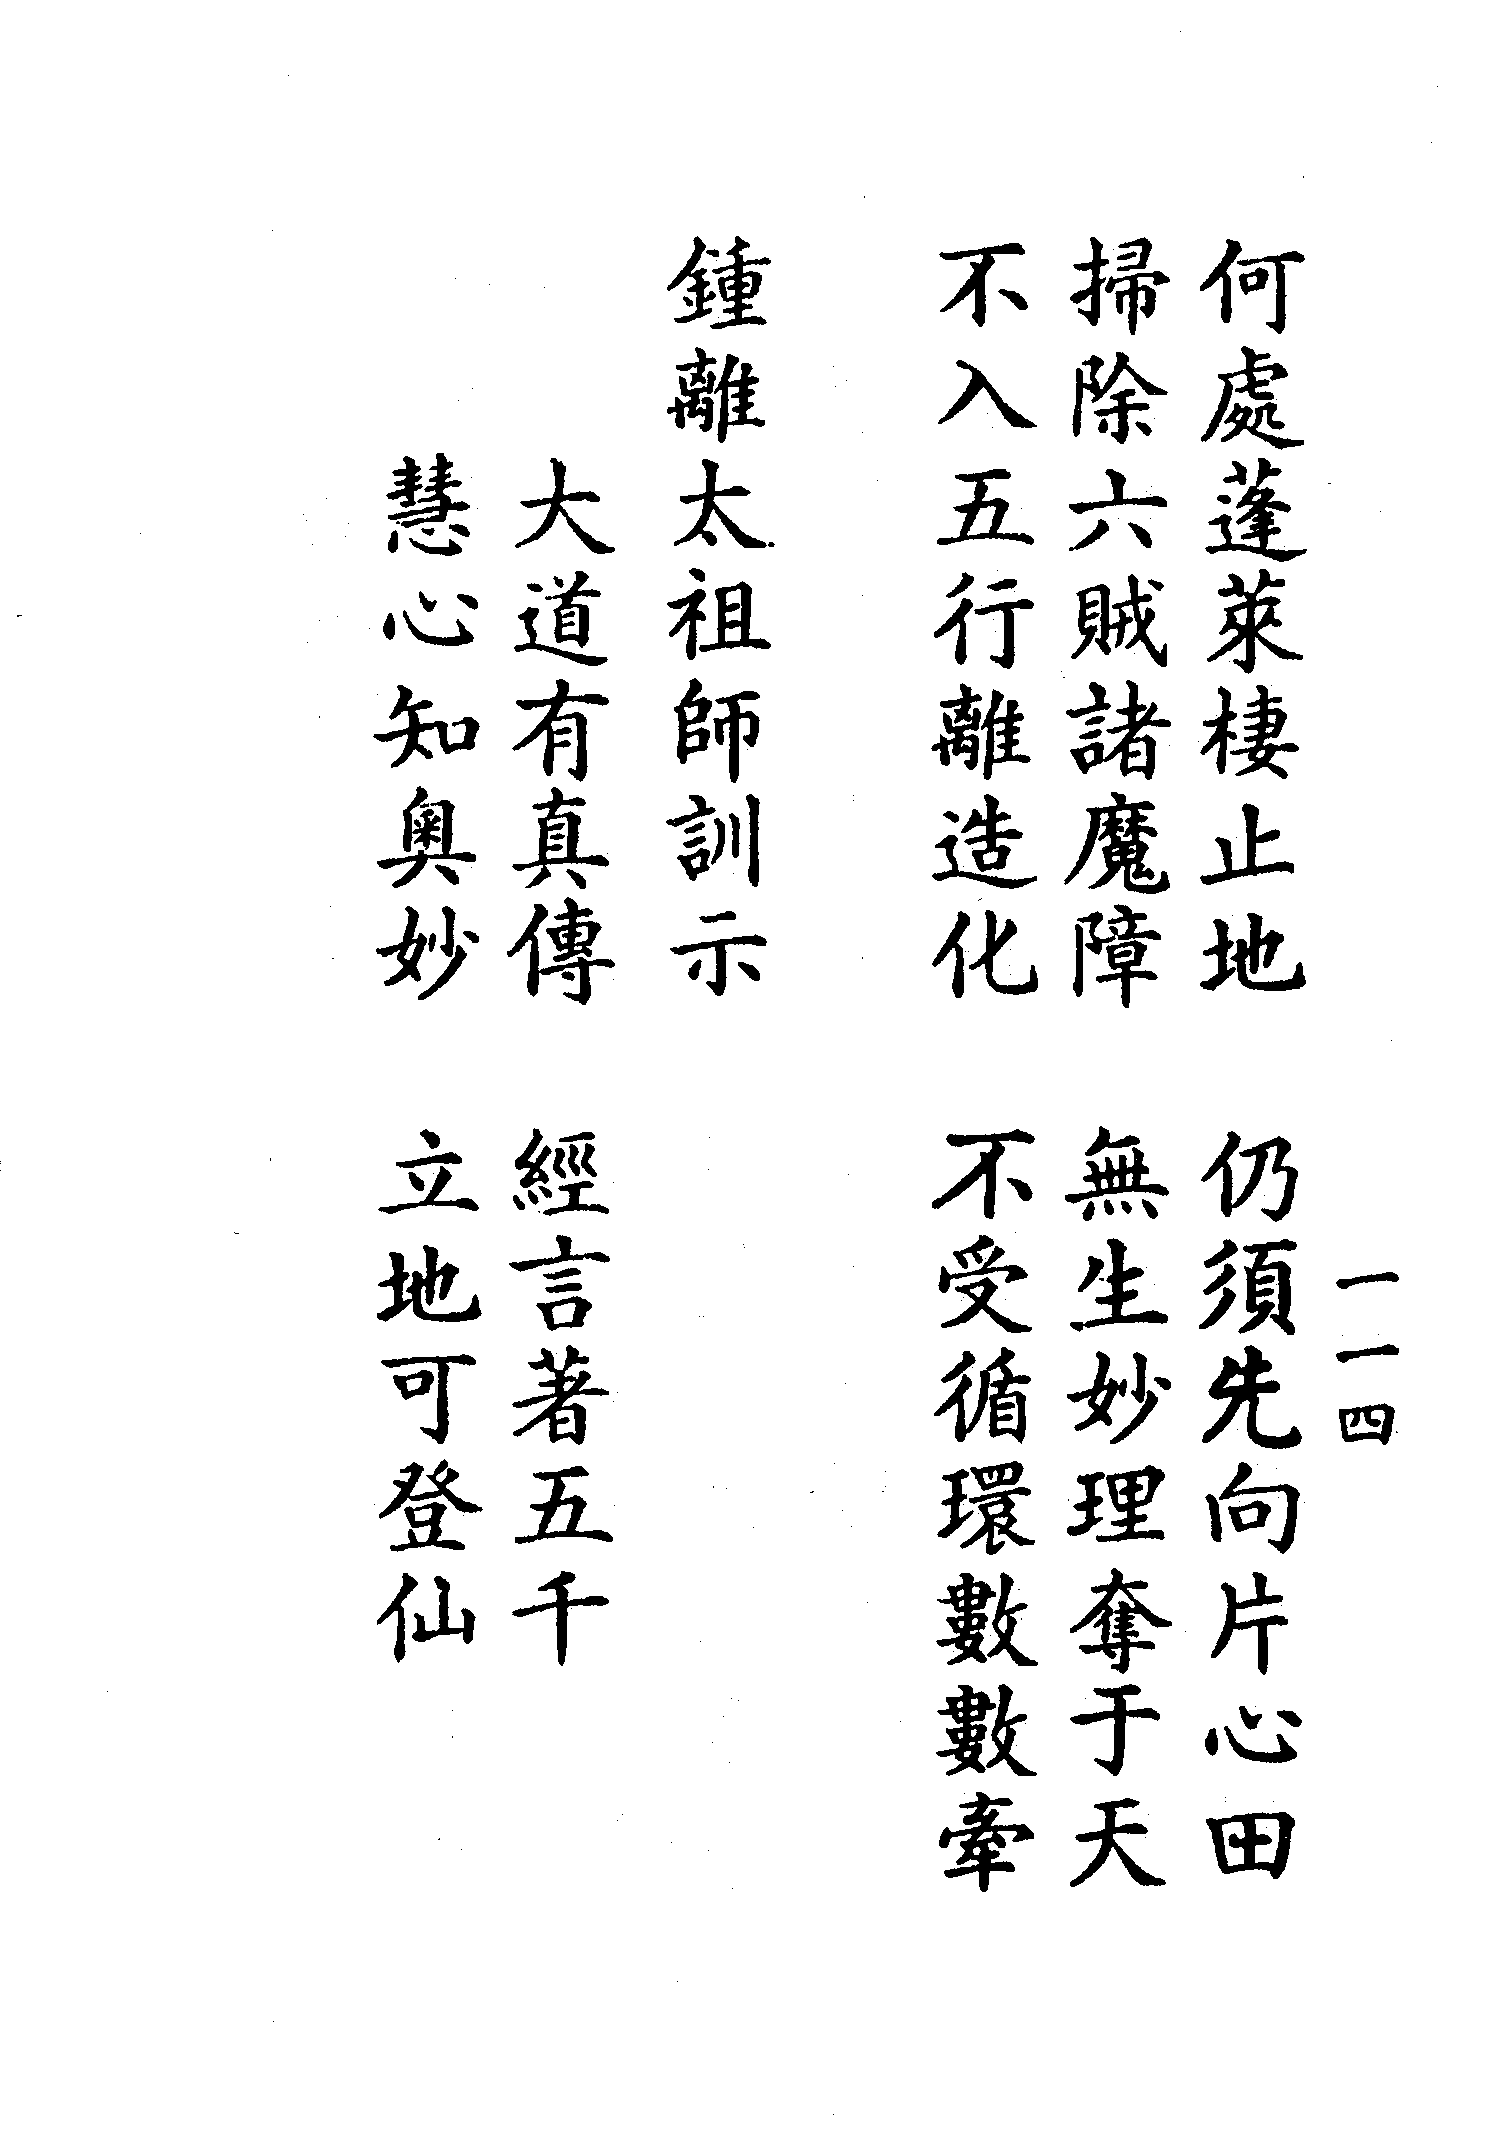 一一四
何處蓬萊棲止地　仍須先向片心田
掃除六賊諸魔障　無生妙理奪于天
不入五行離造化　不受循環數數牽
鍾離太祖師訓示
大道有真傳　經言著五千
慧心知奧妙　立地可登仙